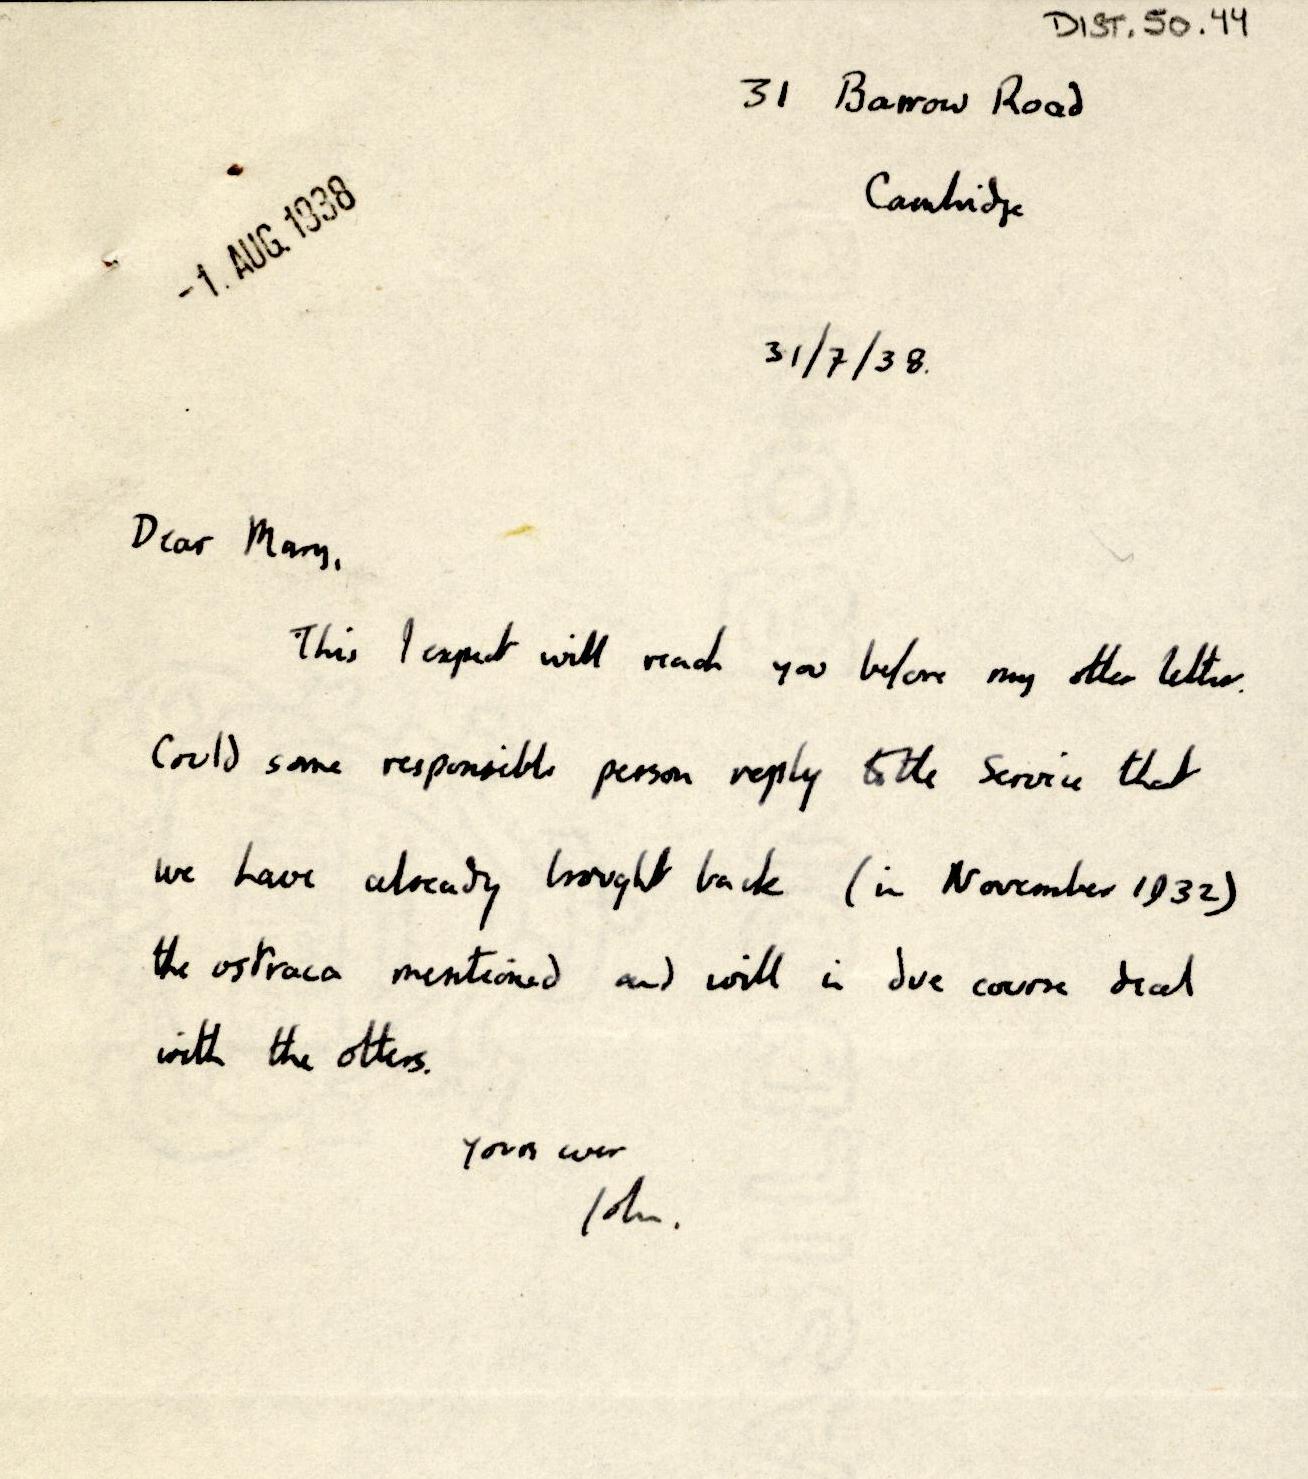 DIST.50.44
31 Barrow Road
Cambridge
-1. AUG. 1938
31/7/38.
Dear Mary,
This I expect will reach you before my other letter.
Could some responsible person reply to the Service that
we have already brought back (in November 1932)
the ostraca mentioned and will in due course deal
with the others.
Yours ever
John.